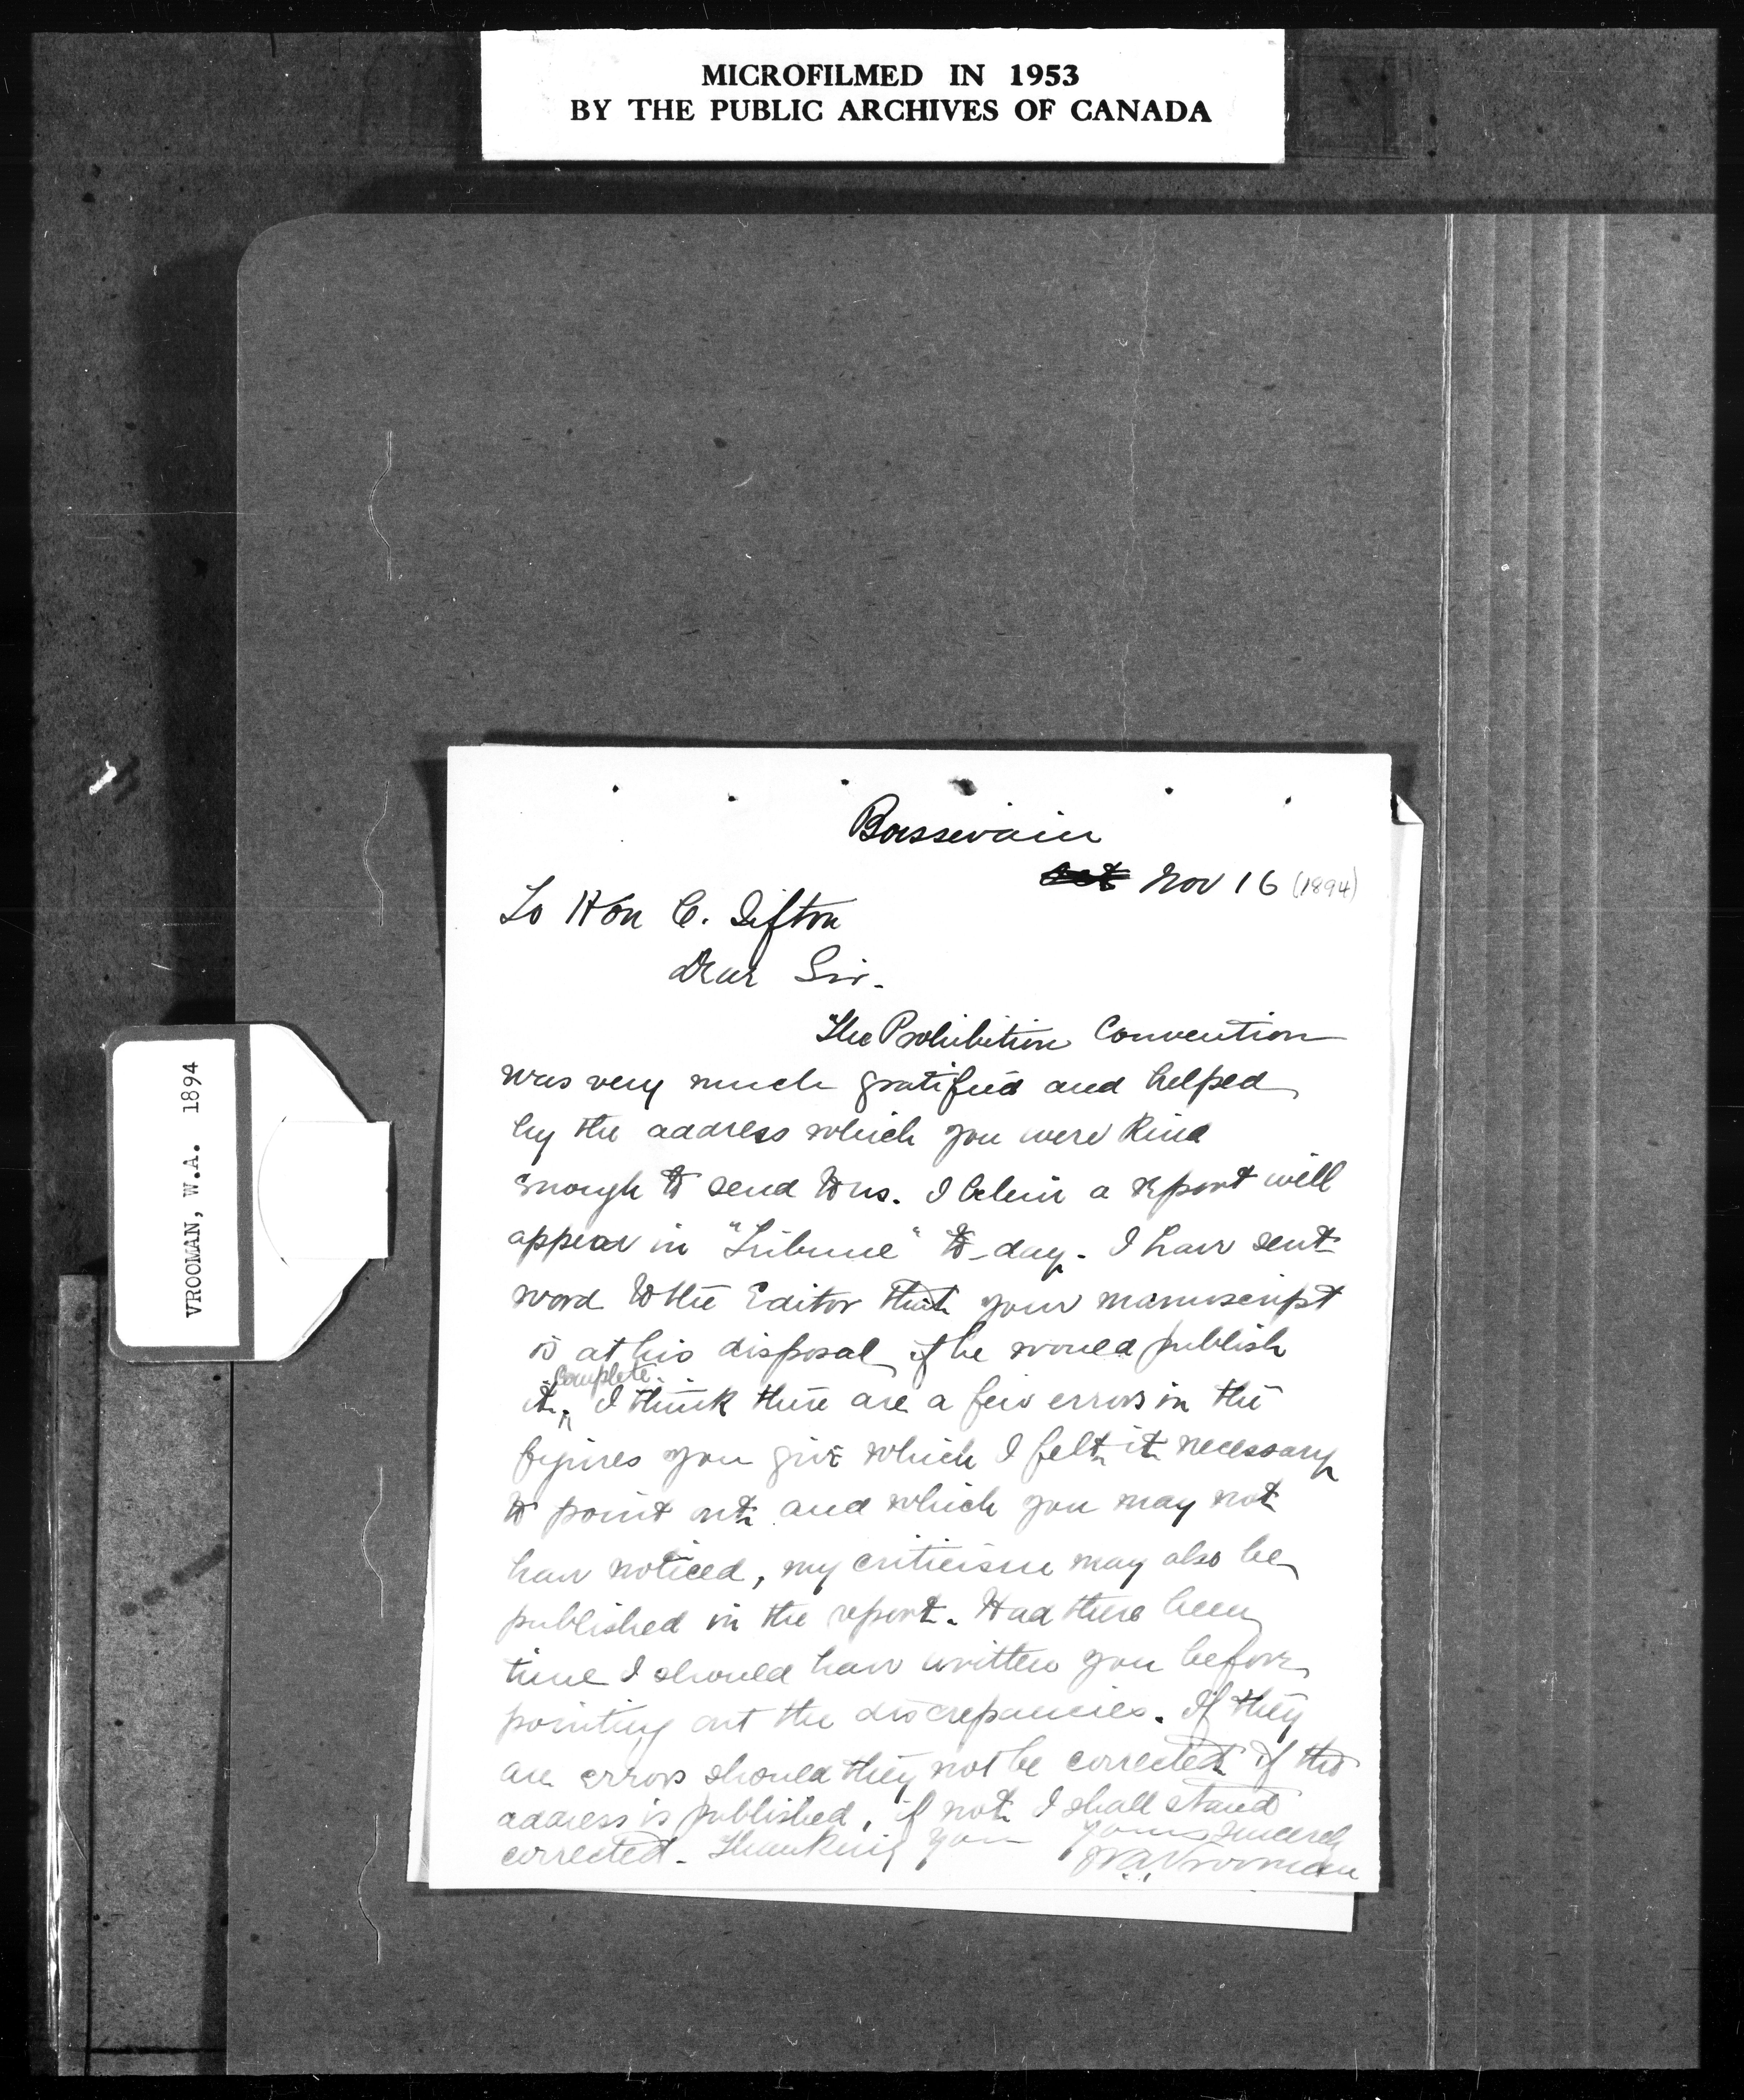 MICROFILMED IN 1953
BY THE PUBLIC ARCHIVES OF CANADA
VROOMAN, W.A. 1894
Boissevain
Oct Nov 16 (1894)
To Hon C. Sifton
Dear Sir.
The Prohibition Convention
was very much gratified and helped
by the address which you were kind
enough to send to us. I believe a report will
appear in "Tribune" to-day. I have sent
word to the Editor that your manuscript
is at his disposal if he would publish
it complete. I think there are a few errors in the
figures you give which I felt it necessary
to point out and which you may not
have noticed, my criticism may also be
published in the report. Had there been
time I should have written you before
pointing out the discrepancies. If they
are errors should they not be corrected if the
address is published, if not I shall stand
corrected. Thanking you yours sincerely
W.A. Vrooman